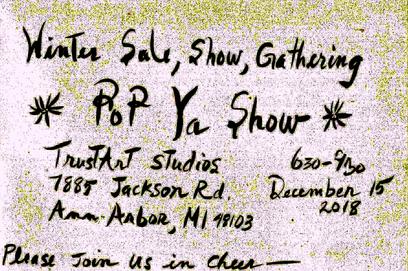 Winter Sale, Show, Gathering
PoP Ya Show
TrustArt Studios
7885 Jackson Rd.
Ann Arbor, MI 48103
630-930
December 15
2018
Please Join Us in Cheer